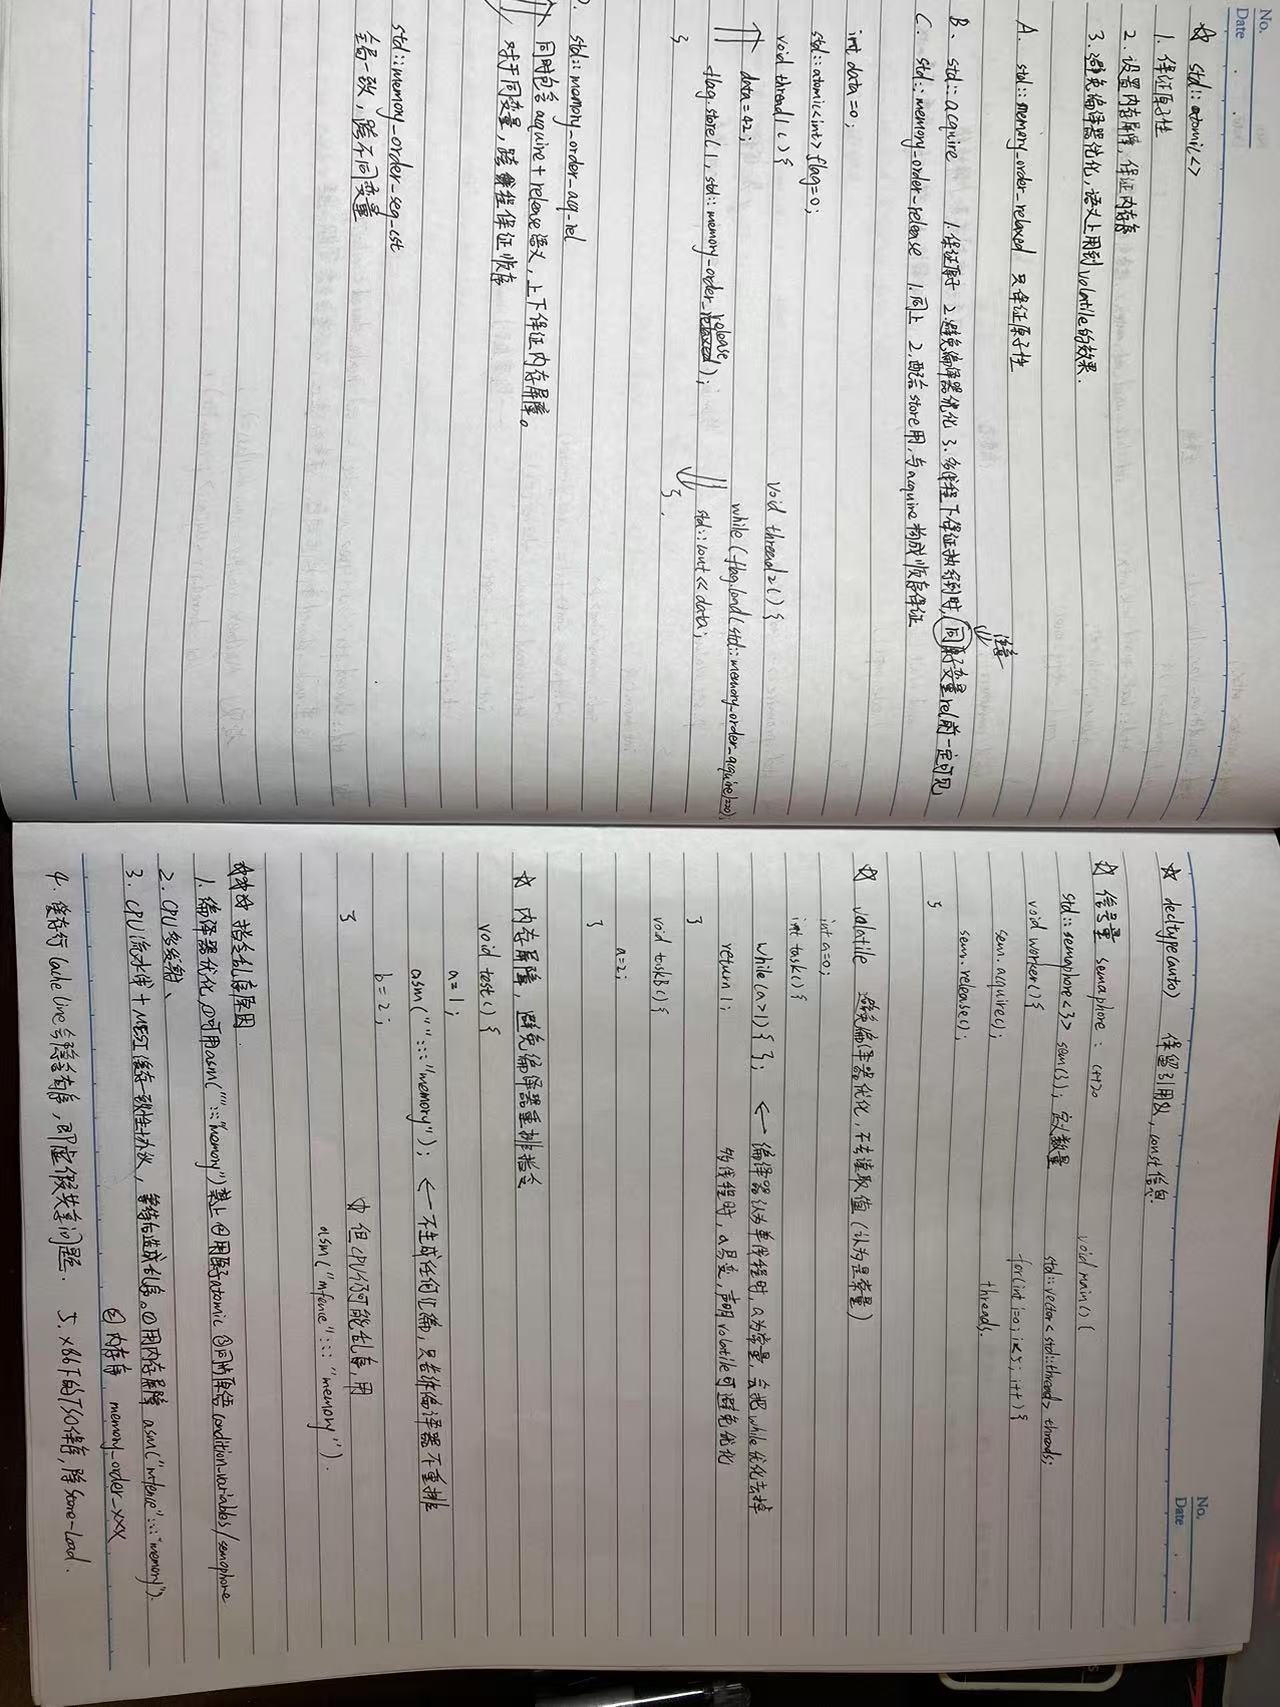 No.
Date
☆ std::atomic<>
1. 保证原子性
2. 设置内存屏障, 保证内存序
3. 避免编译器优化, 语义上用到volatile的效果.
A. std::memory_order_relaxed 只保证原子性
注意
B. std::acquire 1.保证原子 2.避免编译器优化 3.多线程下保证执行到时, 同原子变量rel前一定可见
C. std::memory_order_release 1.同上 2.配合store用, 与acquire构成顺序保证
int data=0;
std::atomic<int> flag=0;
void thread1(){
data=42;
flag.store(1, std::memory_order_release);
}
void thread2(){
while(flag.load(std::memory_order_acquire)==0);
std::cout<<data;
}
D. std::memory_order_acq_rel
同时包含acquire+release语义, 上下保证内存屏障。
对于同变量, 跨线程保证顺序
std::memory_order_seq_cst
全局一致, 跨不同变量
No.
Date
☆ decltype(auto) 保留引用&, const信息.
☆ 信号量 semaphore: C++20
std::semaphore<3> sem(3); 定义数量
void worker(){
sem.acquire();
sem.release();
}
void main(){
std::vector<std::thread> threads;
for(int i=0; i<5; i++){
threads.
☆ volatile 避免编译器优化, 不去读取值(认为是常量)
int a=0;
int task(){
while(a>1){ }; ← 编译器认为单线程时, a为常量, 会把while优化去掉
return 1; 多线程时, a易变, 声明volatile可避免优化
}
void taskB(){
a=2;
}
☆ 内存屏障, 避免编译器重排指令
void test(){
a=1;
asm("":::"memory"); ← 不生成任何汇编, 只告诉编译器不重排
b=2;
☆ 但CPU仍可能乱序, 用
}
asm("mfence":::"memory").
☆☆☆ 指令乱序原因.
1. 编译器优化, ①可用asm("":::"memory")禁止 ②用原子atomic ③同步原语condition_variables/semaphore
2. CPU多发射、
3. CPU流水线+MESI缓存一致性协议, 等待后造成乱序。①用内存屏障 asm("mfence":::"memory").
②内存序 memory_order_xxx
4. 缓存行 Cache line 5. x86下的TSO保序, 除Store-Load.